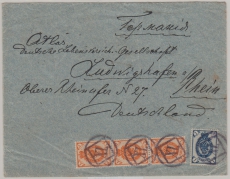 Германия
Atlas
Deutsche Lebensversich.-Gesellschaft
Ludwigshafen a/
Rhein
Oberer Rheinufer N 27.
Deutschland